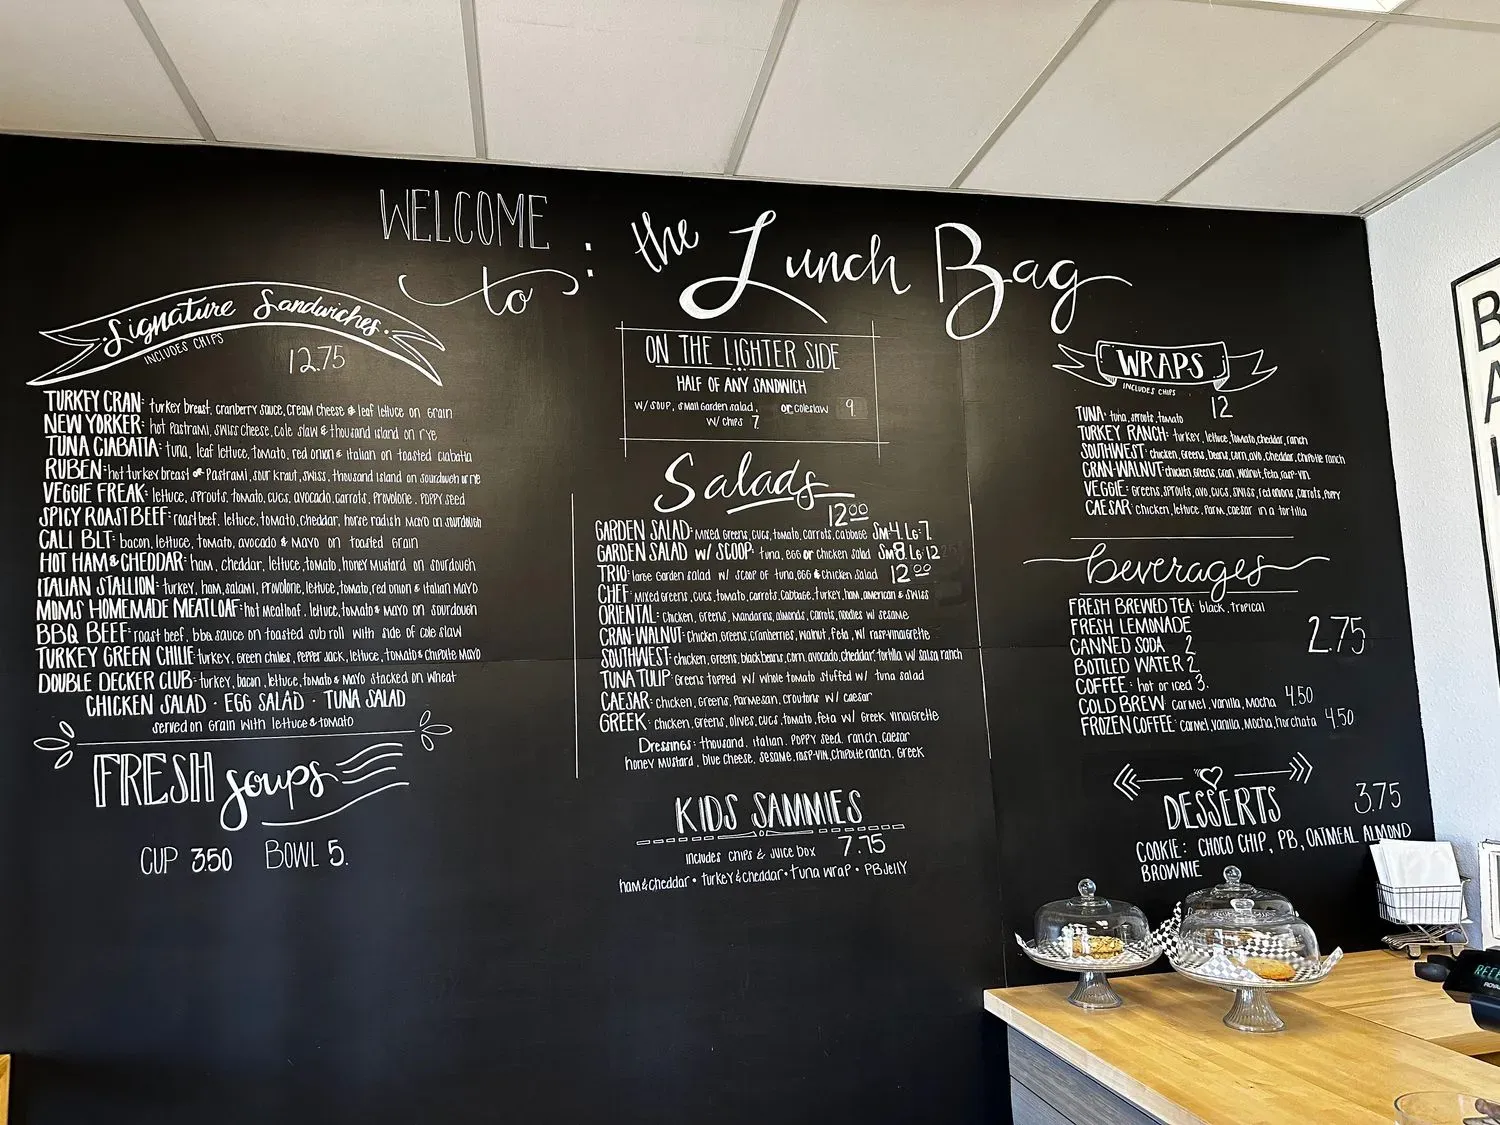 WELCOME
to :
the Lunch Bag
Signature Sandwiches
INCLUDES CHIPS
12.75
TURKEY CRAN: turkey breast, cranberry sauce, cream cheese & leaf lettuce on grain
NEW YORKER: hot pastrami, swiss cheese, cole slaw & thousand island on rye
TUNA CIABATTA: tuna, leaf lettuce, tomato, red onion & italian on toasted ciabatta
RUBEN: hot turkey breast or pastrami, sour kraut, swiss, thousand island on sourdough or rye
VEGGIE FREAK: lettuce, sprouts, tomato, cucs, avocado, carrots, provolone, poppy seed
SPICY ROAST BEEF: roast beef, lettuce, tomato, cheddar, horse radish mayo on sourdough
CALI BLT: bacon, lettuce, tomato, avocado & mayo on toasted grain
HOT HAM & CHEDDAR: ham, cheddar, lettuce, tomato, honey mustard on sourdough
ITALIAN STALLION: turkey, ham, salami, provolone, lettuce, tomato, red onion & italian mayo
MOMS HOMEMADE MEATLOAF: hot meatloaf, lettuce, tomato & mayo on sourdough
BBQ BEEF: roast beef, bbq sauce on toasted sub roll with side of cole slaw
TURKEY GREEN CHILIE: turkey, green chilies, pepper jack, lettuce, tomato & chipotle mayo
DOUBLE DECKER CLUB: turkey, bacon, lettuce, tomato & mayo stacked on wheat
CHICKEN SALAD · EGG SALAD · TUNA SALAD
served on grain with lettuce & tomato
FRESH soups
CUP 3.50 BOWL 5.
ON THE LIGHTER SIDE
HALF OF ANY SANDWICH
w/ soup, small garden salad, or coleslaw 9
w/ chips 7
Salads
12.00
GARDEN SALAD: mixed greens, cucs, tomato, carrots, cabbage Sm 4. LG 7.
GARDEN SALAD W/ SCOOP: tuna, egg or chicken salad Sm 8. LG 12
TRIO: large garden salad w/ scoop of tuna, egg & chicken salad 12.00
CHEF: mixed greens, cucs, tomato, carrots, cabbage, turkey, ham, american & swiss
ORIENTAL: chicken, greens, mandarins, almonds, carrots, noodles w/ sesame
CRAN-WALNUT: chicken, greens, cranberries, walnut, feta, w/ rasp-vinaigrette
SOUTHWEST: chicken, greens, black beans, corn, avocado, cheddar, tortilla w/ salsa ranch
TUNA TULIP: greens topped w/ whole tomato stuffed w/ tuna salad
CAESAR: chicken, greens, parmesan, croutons w/ caesar
GREEK: chicken, greens, olives, cucs, tomato, feta w/ Greek vinaigrette
Dressings: thousand, italian, poppy seed, ranch, caesar
honey mustard, blue cheese, sesame, rasp-vin, chipotle ranch, Greek
KIDS SAMMIES
includes chips & juice box 7.75
ham & cheddar • turkey & cheddar • tuna wrap • PB Jelly
WRAPS
INCLUDES CHIPS
12
TUNA: tuna, sprouts, tomato
TURKEY RANCH: turkey, lettuce, tomato, cheddar, ranch
SOUTHWEST: chicken, greens, beans, corn, avo, cheddar, chipotle ranch
CRAN-WALNUT: chicken, greens, cran, walnut, feta, rasp-vin
VEGGIE: greens, sprouts, avo, cucs, swiss, red onions, carrots, poppy
CAESAR: chicken, lettuce, parm, caesar in a tortilla
beverages
FRESH BREWED TEA: black, tropical
FRESH LEMONADE
2.75
CANNED SODA 2
BOTTLED WATER 2
COFFEE: hot or iced 3.
COLD BREW: carmel, vanilla, mocha 4.50
FROZEN COFFEE: carmel, vanilla, mocha, horchata 4.50
DESSERTS
3.75
COOKIE: CHOCO CHIP, PB, OATMEAL ALMOND
BROWNIE
B
A